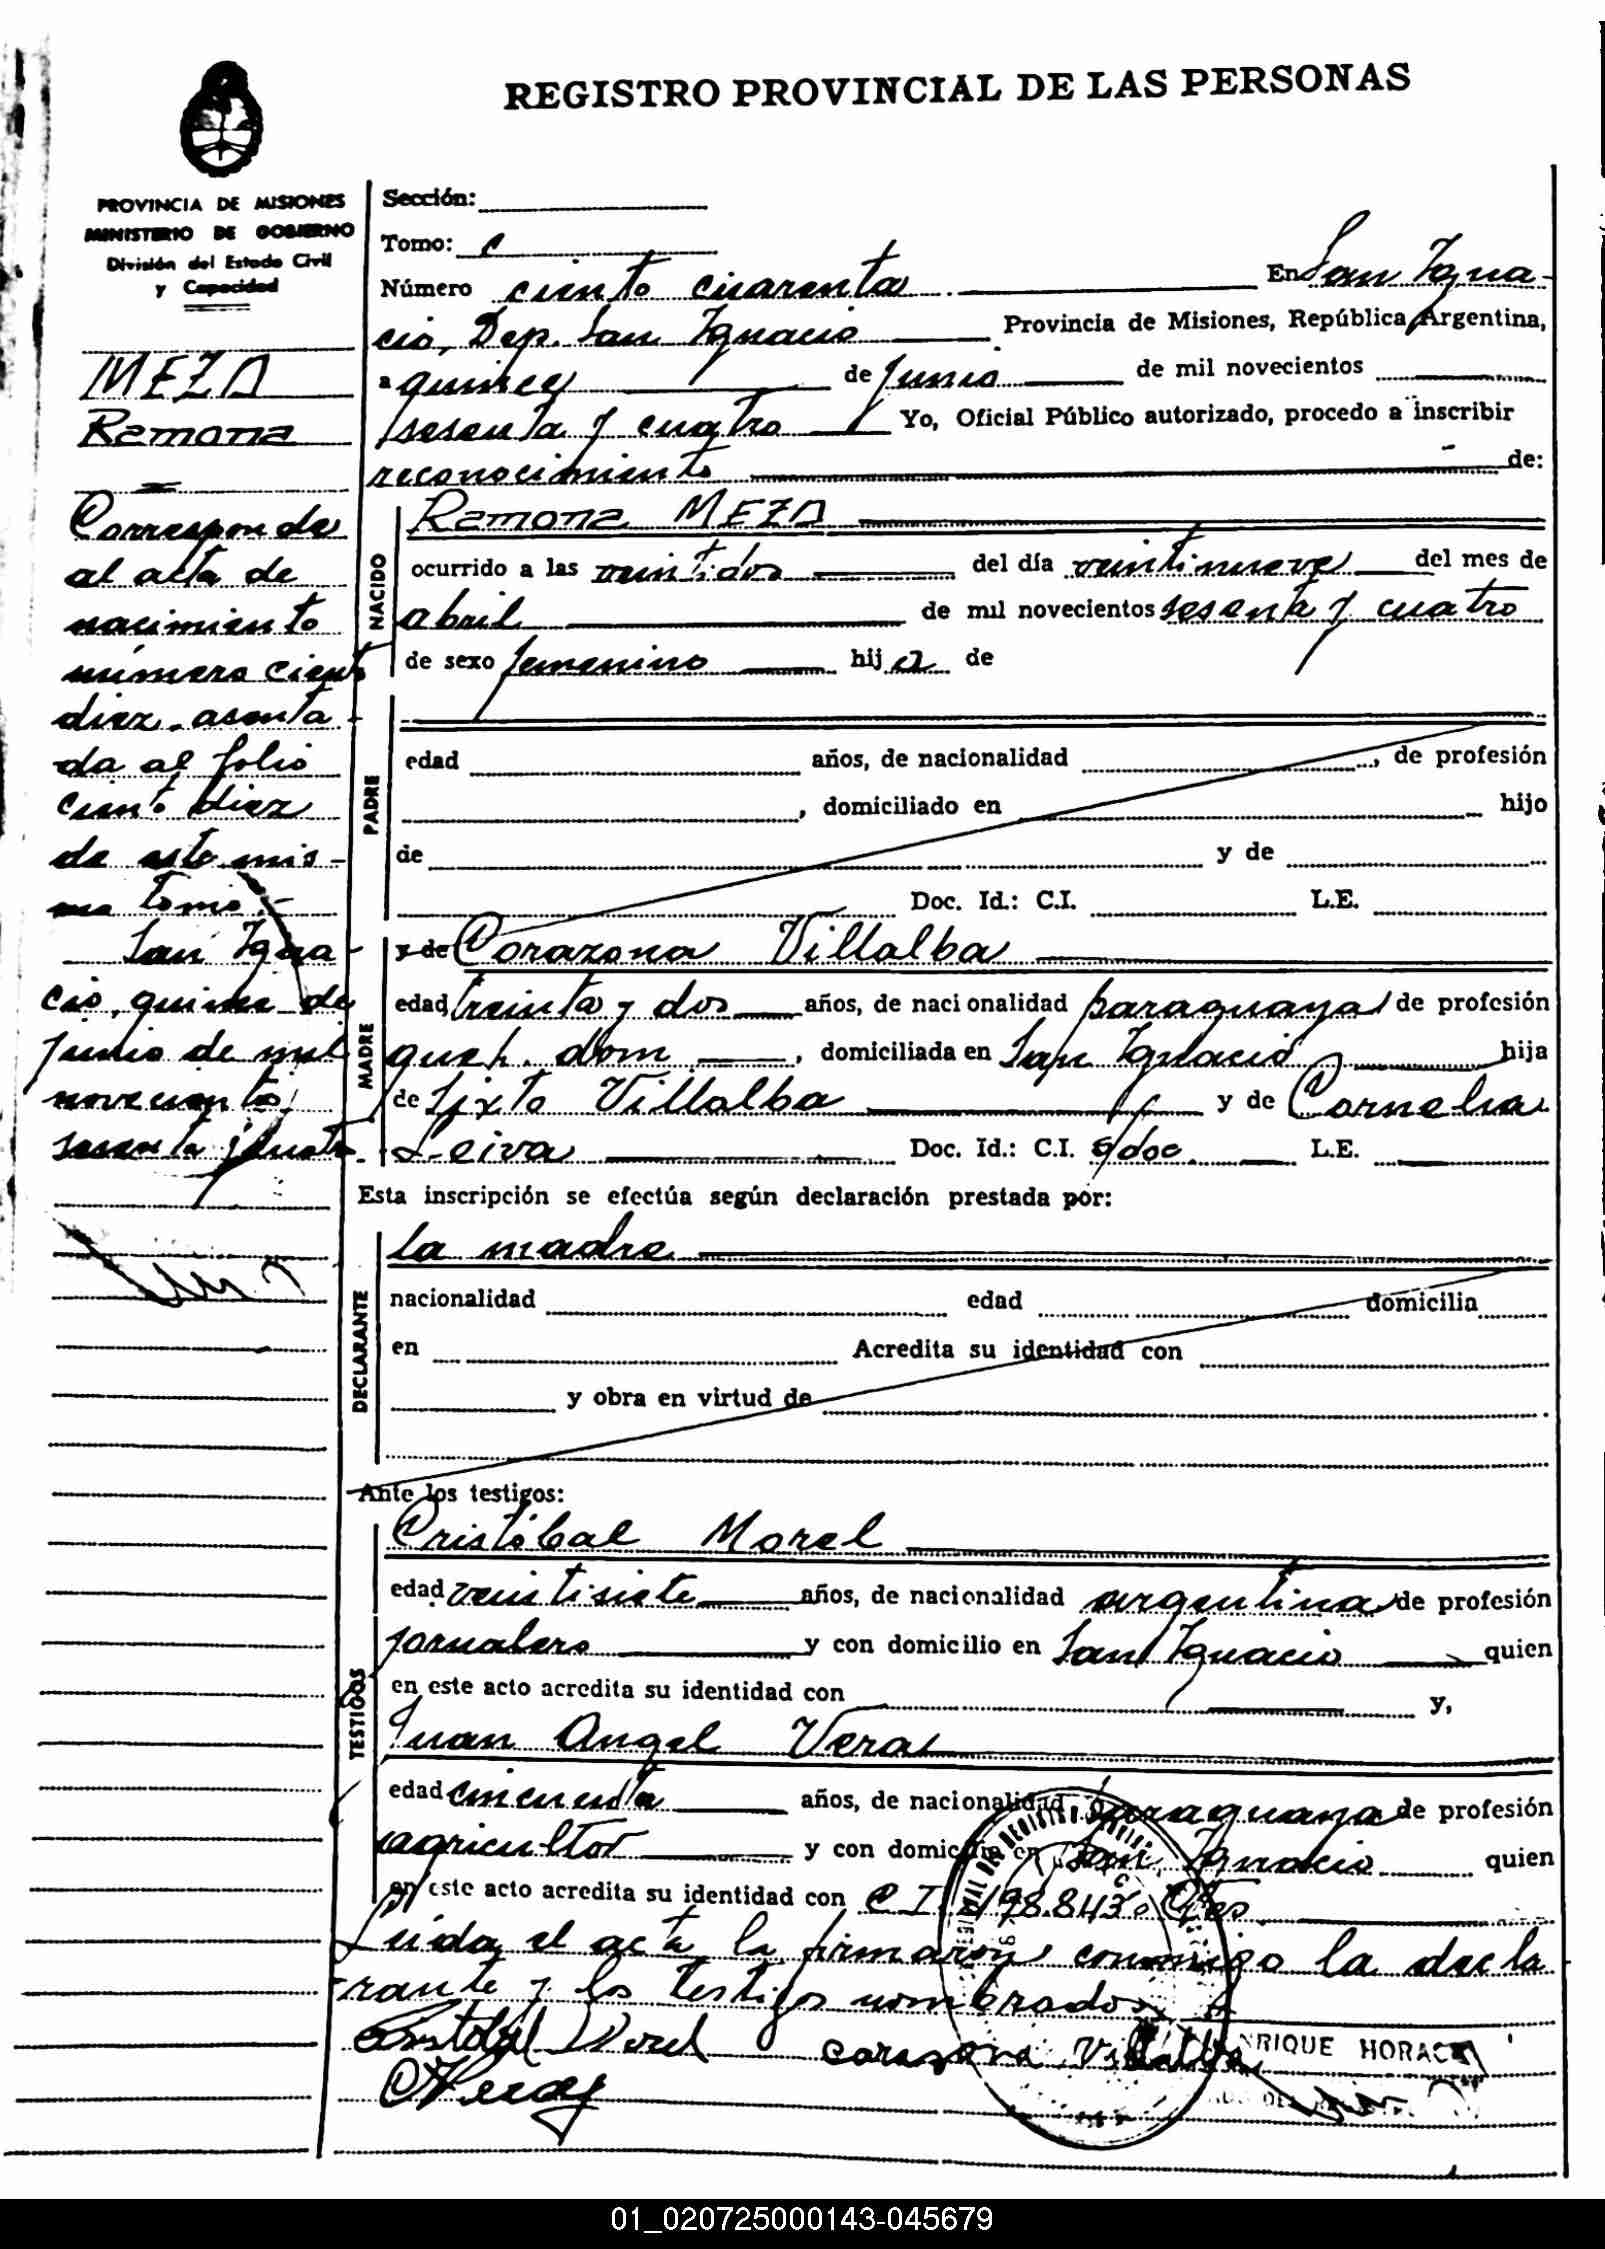 REGISTRO PROVINCIAL DE LAS PERSONAS
PROVINCIA DE MISIONES
MINISTERIO DE GOBIERNO
División del Estado Civil
y Capacidad
MEZA
Ramona
Corresponde
al acta de
nacimiento
número ciento
diez, asenta-
da al folio
ciento diez
de este mis-
mo tomo.-
San Igna-
cio, quince de
junio de mil
novecientos
sesenta y cuatro.-
Sección:
Tomo: C
Número ciento cuarenta En San Igna-
cio, Dep. San Ignacio Provincia de Misiones, República Argentina,
a quince de junio de mil novecientos
sesenta y cuatro Yo, Oficial Público autorizado, procedo a inscribir
reconocimiento de:
NACIDO
Ramona MEZA
ocurrido a las veintidos del día veintinueve del mes de
abril de mil novecientos sesenta y cuatro
de sexo femenino hija de
PADRE
edad años, de nacionalidad , de profesión
, domiciliado en hijo
de y de
Doc. Id.: C.I. L.E.
MADRE
y de Corazona Villalba
edad treinta y dos años, de nacionalidad paraguaya de profesión
queh. dom , domiciliada en San Ignacio hija
de Sixto Villalba y de Cornelia
Leiva Doc. Id.: C.I. s/doc. L.E.
Esta inscripción se efectúa según declaración prestada por:
DECLARANTE
la madre
nacionalidad edad domicilia
en Acredita su identidad con
y obra en virtud de
Ante los testigos:
TESTIGOS
Cristóbal Morel
edad veintisiete años, de nacionalidad argentina de profesión
jornalero y con domicilio en San Ignacio quien
en este acto acredita su identidad con y,
Juan Angel Vera
edad cincuenta años, de nacionalidad paraguaya de profesión
agricultor y con domicilio en San Ignacio quien
en este acto acredita su identidad con C.I. 198.843
Leída el acta la firmaron conmigo la decla
rante y los testigos nombrados
Cristobal Morel corazona Villalba
NRIQUE HORAC
01_020725000143-045679